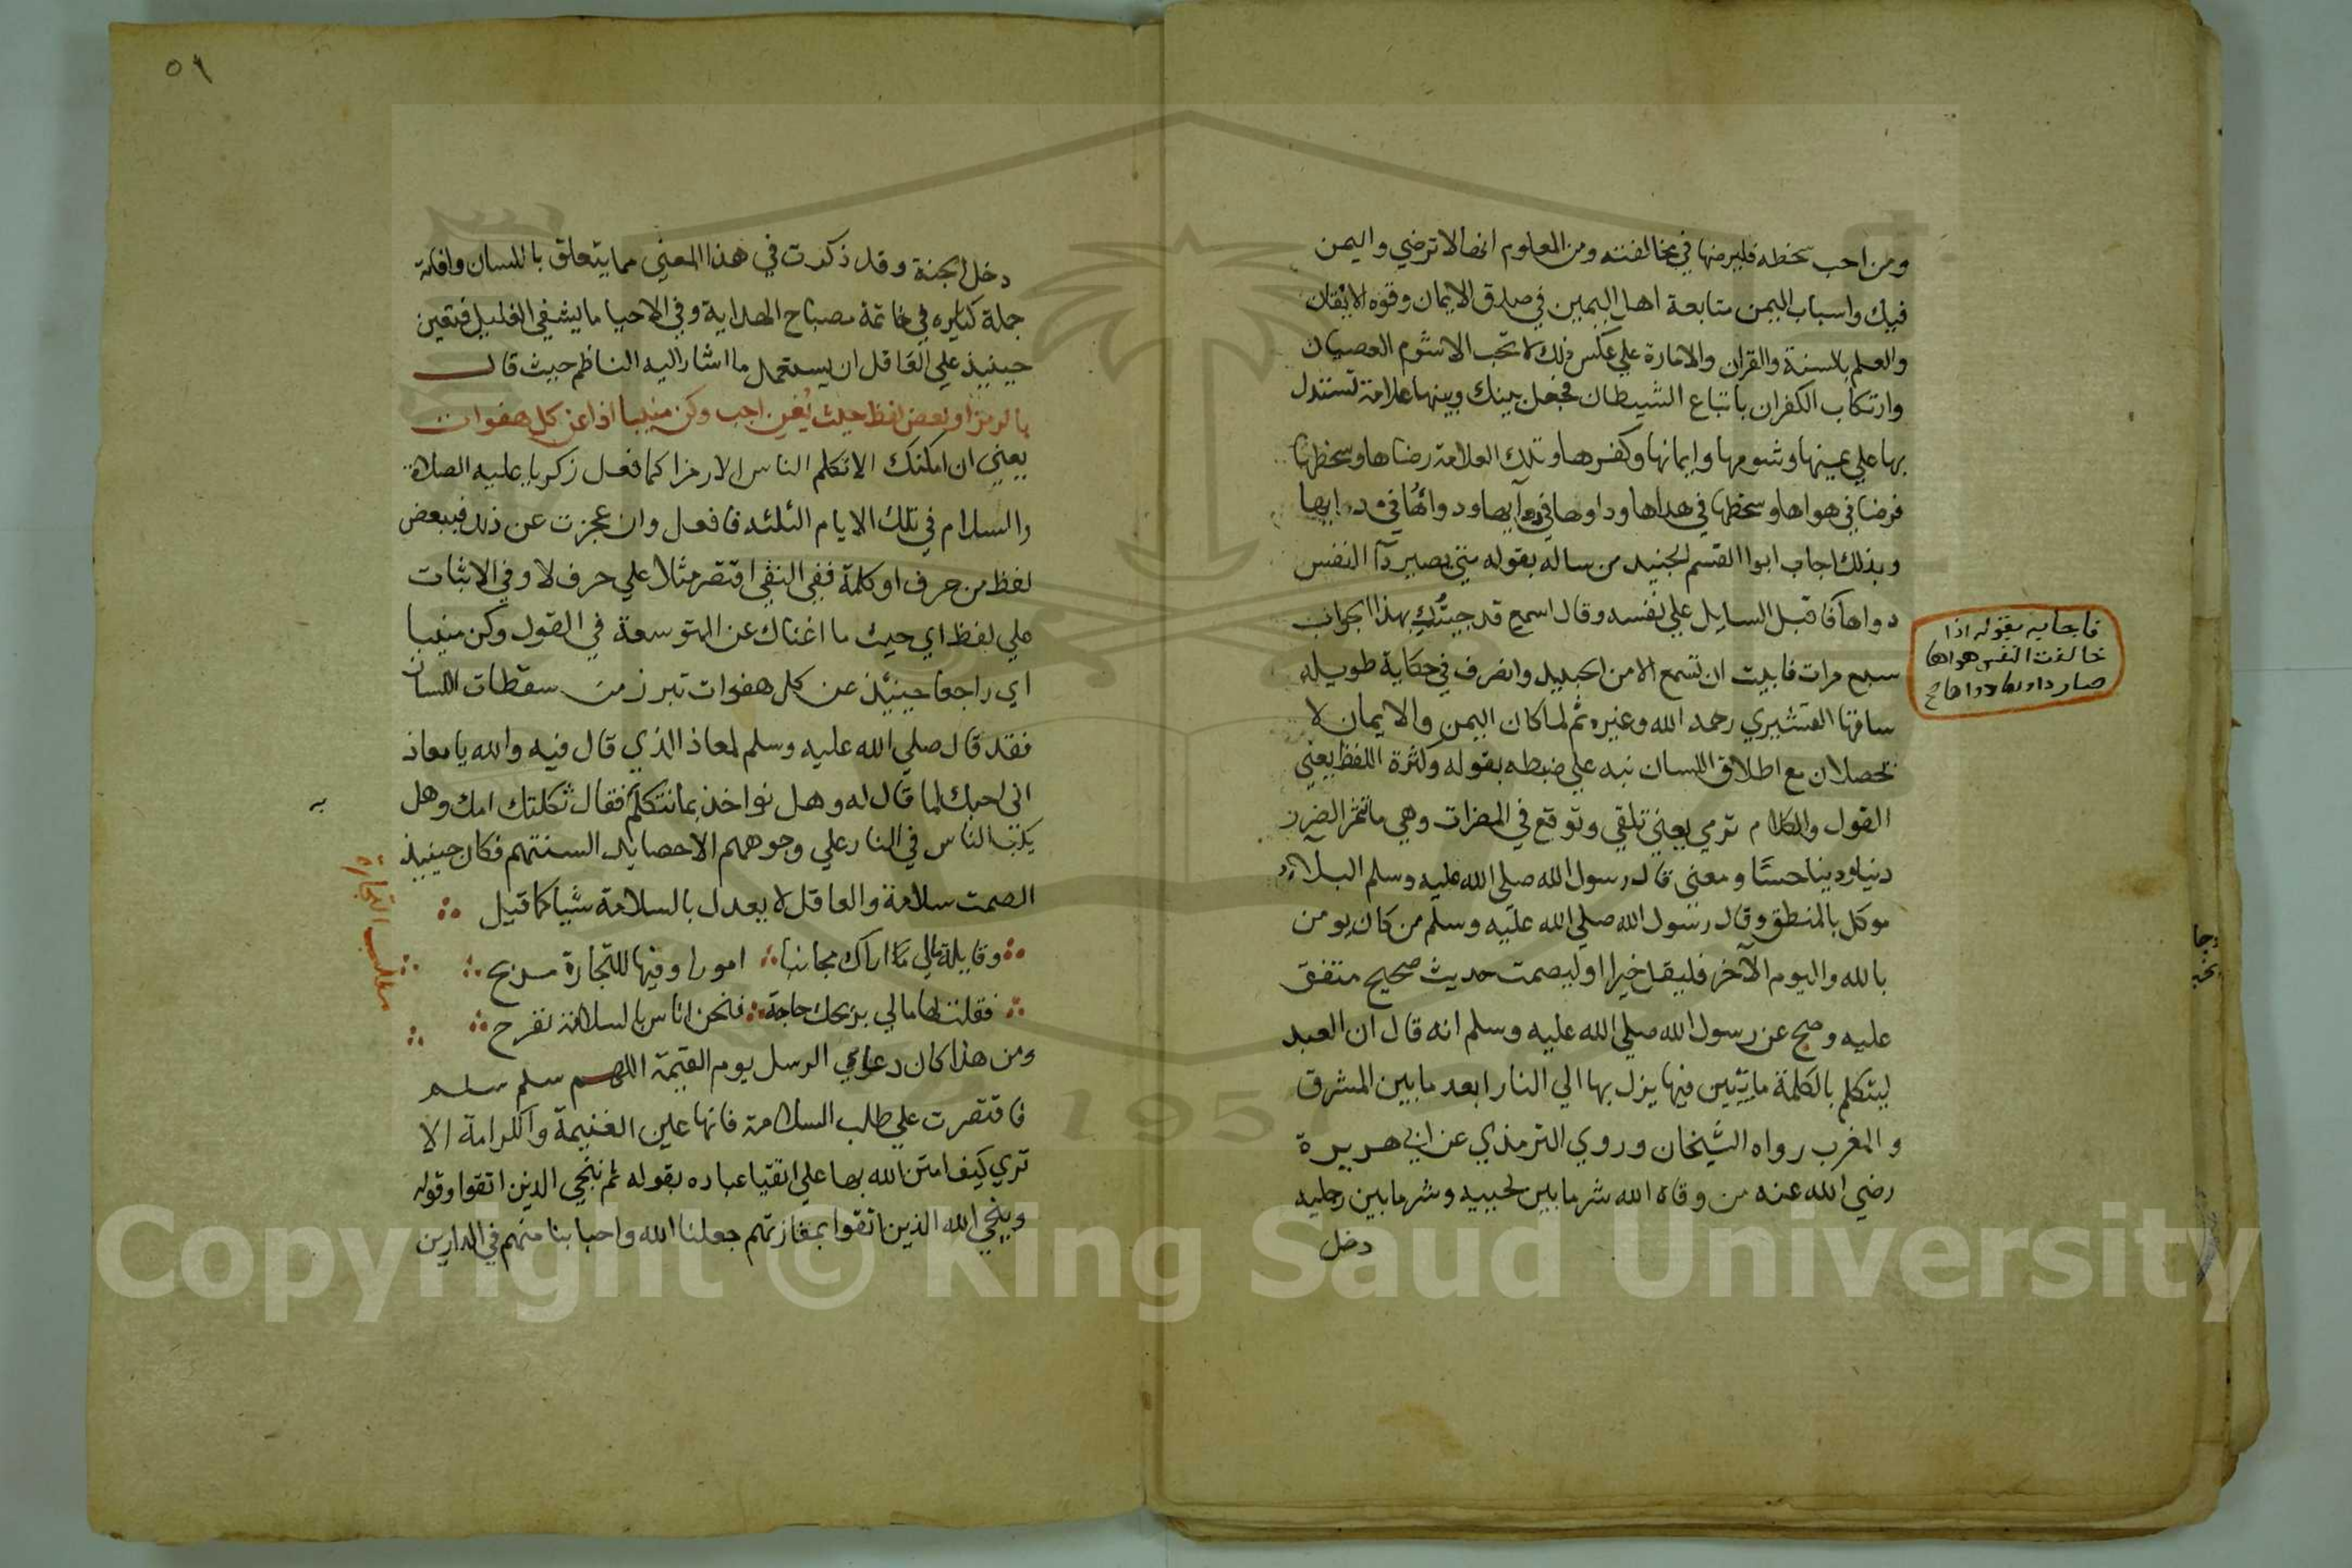 ومن احب سخطه فليرضها في مخالفته ومن المعلوم انها لا ترضي واليمن
فيك واسباب اليمن متابعة اهل اليمين في صدق الايمان وقوه الايقان
والعلم بالسنة والقران والامارة علي عكس ذلك لا تحب الا شوم العصيان
وارتكاب الكفران باتباع الشيطان فجعل بينك وبينها علامة تستدل
بها علي يمينها وشومها وايمانها وكفرها وتلك العلامة رضاها وسخطها
فرضا في هواها وسخطها في هداها وداوها في دوايها ودواؤها في دايها
وبذلك اجاب ابوا القسم الجنيد من ساله بقوله متي يصير دآ النفس
دواها فاقبل السايل علي نفسه وقال اسمع قد جيتك بهذا الجواب
فاجابه بقوله اذا
خالفت النفس هواها
صار داوها دواها صح
سبع مرات فابيت ان تسمع الا من الجنيد وانصرف في حكاية طويله
ساقها القشيري رحمه الله وغيره ثم لما كان اليمن والايمان لا
يحصلان مع اطلاق اللسان نبه علي ضبطه بقوله وكثرة اللفظ يعني
القول والكلام ترمي يعني تلقي وتوقع في المضرات وهي ما تثمر الضرر
دنيا ودينا حسا ومعني قال رسول الله صلي الله عليه وسلم البلاء
موكل بالمنطق وقال رسول الله صلي الله عليه وسلم من كان يومن
بالله واليوم الآخر فليقل خيرا او ليصمت حديث صحيح متفق
عليه وصح عن رسول الله صلي الله عليه وسلم انه قال ان العبد
ليتكلم بالكلمة ما يتبين فيها يزل بها الي النار ابعد ما بين المشرق
والمغرب رواه الشيخان وروي الترمذي عن ابي هريرة
رضي الله عنه من وقاه الله شر ما بين لحييه وشر ما بين رجليه
دخل
٥٩
دخل الجنة وقد ذكرت في هذا المعني مما يتعلق باللسان وافاته
جملة كثيره في خاتمة مصباح الهداية وفي الاحيا ما يشفي الغليل فتعين
حينيذ علي العاقل ان يستعمل ما اشار اليه الناظم حيث قال
بالرمز او بعض لفظ حيث يُغني اجب وكن منيبا اذا عن كل هفوات
يعني ان امكنك الا تكلم الناس الا رمزا كما فعل زكريا عليه الصلاة
والسلام في تلك الايام الثلثه فافعل وان عجزت عن ذلك فببعض
لفظ من حرف او كلمة ففي النفي اقتصر مثلا علي حرف لا وفي الاثبات
علي لفظ اي حيث ما اغناك عن التوسعة في القول وكن منيبا
اي راجعا حينيذ عن كل هفوات تبرز من سقطات اللسان
فقد قال صلي الله عليه وسلم لمعاذ الذي قال فيه والله يا معاذ
اني احبك لما قال له وهل نواخذ بما نتكلم فقال ثكلتك امك وهل
به
يكب الناس في النار علي وجوههم الا حصايد السنتهم فكان حينيذ
الصمت سلامة والعاقل لا يعدل بالسلامة شيا كما قيل
مطلب التجارة
وقايلة مالي اراك مجانبا امورا وفيها للتجارة مربح
فقلت لها مالي بربحك حاجة فنحن اناس بالسلامة نفرح
ومن هذا كان دعاوي الرسل يوم القيمة اللهم سلم سلم
فاقتصرت علي طلب السلامة فانها عين الغنيمة والكرامة الا
تري كيف امتن الله بها علي اتقيا عباده بقوله ثم ننجي الذين اتقوا وقوله
وينجي الله الذين اتقوا بمفازتهم جعلنا الله واحبابنا منهم في الدارين
Copyright © King Saud University
1957